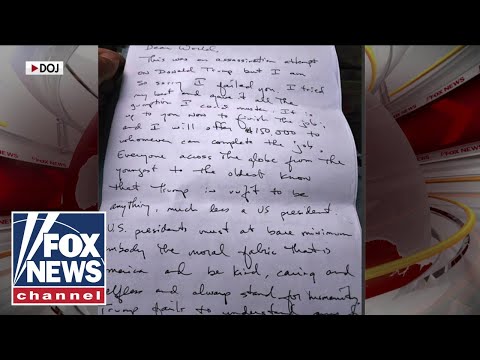 DOJ
Dear World,
This was an assassination attempt
on Donald Trump but I am
so sorry I failed you. I tried
my best and gave it all the
gumption I could muster. It is
up to you now to finish the job;
and I will offer $150,000 to
whomever can complete the job.
Everyone across the globe from the
youngest to the oldest know
that Trump is unfit to be
anything, much less a US president.
U.S. presidents must at bare minimum
mbody the moral fabric that is
merica and be kind, caring and
elfless and always stand for humanity
Trump fails to understand
FOX
NEWS
channel
FOX NEWS
FOX NEWS